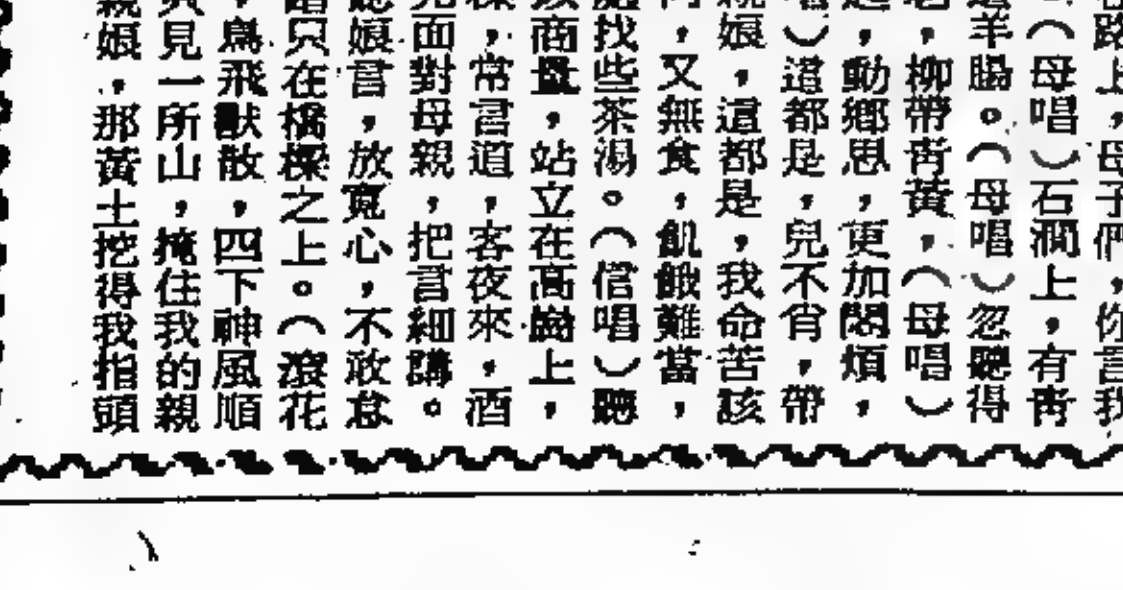 路上，母子們，你言我
（母唱）石澗上，有青
羊腸。（母唱）忽聽得
，柳帶青黃，（母唱）
，動鄉思，更加悶煩，
）道都是，兒不肖，帶
娘，這都是，我命苦該
，又無食，飢餓難當，
找些茶湯。（信唱）聽
商量，站立在高崗上，
，常言道，客夜來，酒
面對母親，把言細講。
娘言，放寬心，不敢怠
只在橋樑之上。（滾花
，鳥飛獸散，四下神風順
見一所山，掩住我的親
娘，那黃土挖得我指頭